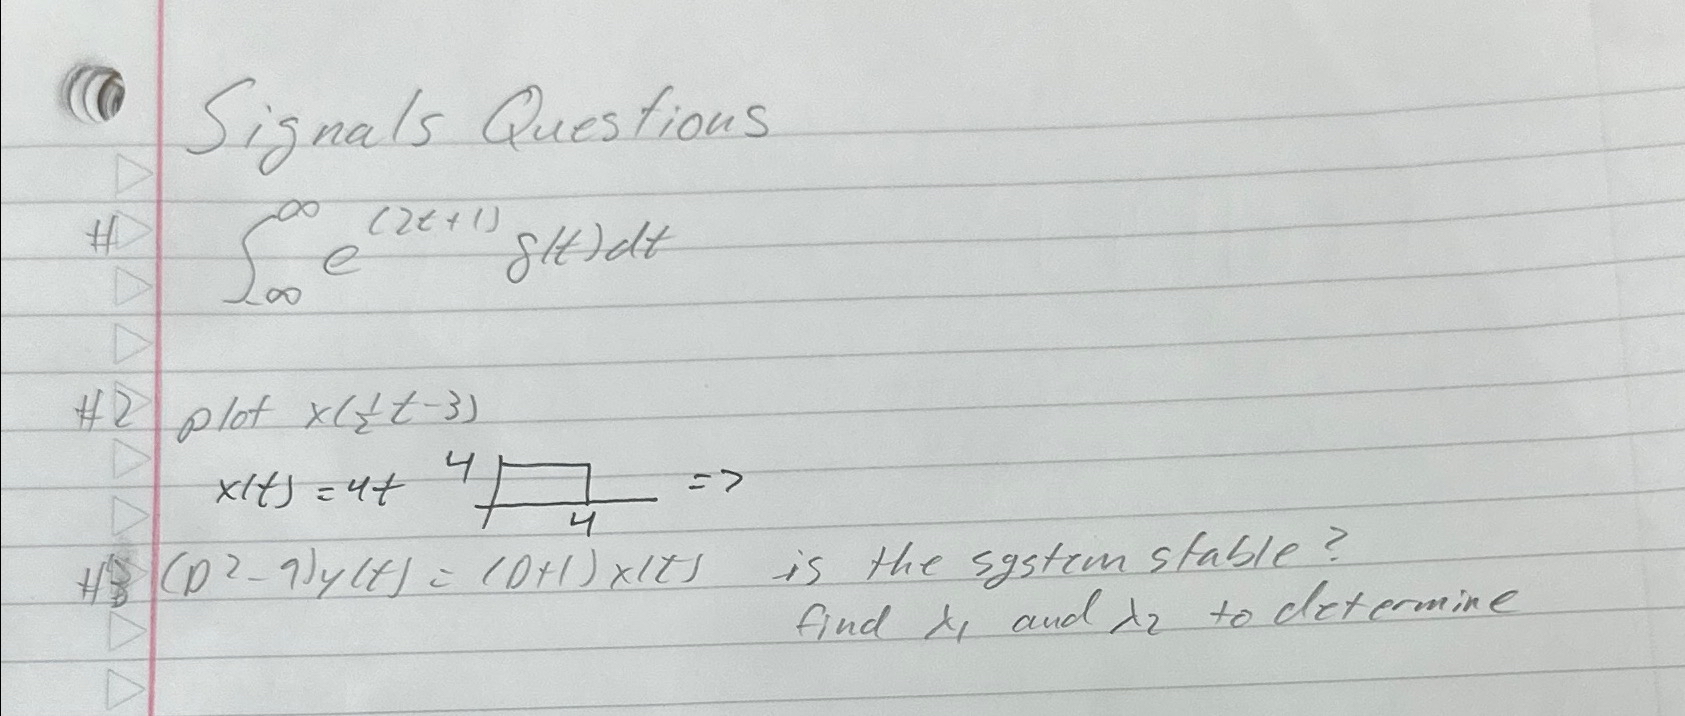 Signals Questions
#1 ∫_∞^∞ e^(2t+1) δ(t)dt
#2 plot x(½t-3)
x(t) = 4t 4 4 =>
#3 (D²-9)y(t) = (D+1)x(t) is the system stable?
find λ₁ and λ₂ to determine